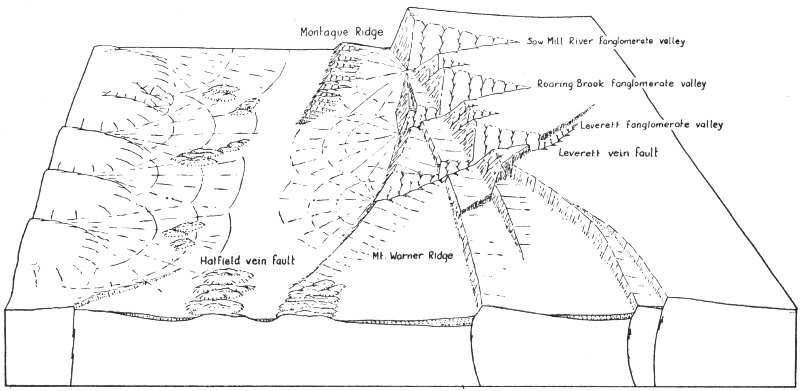 Montague Ridge
Saw Mill River fanglomerate valley
Roaring Brook fanglomerate valley
Leverett fanglomerate valley
Leverett vein fault
Hatfield vein fault
Mt. Warner Ridge